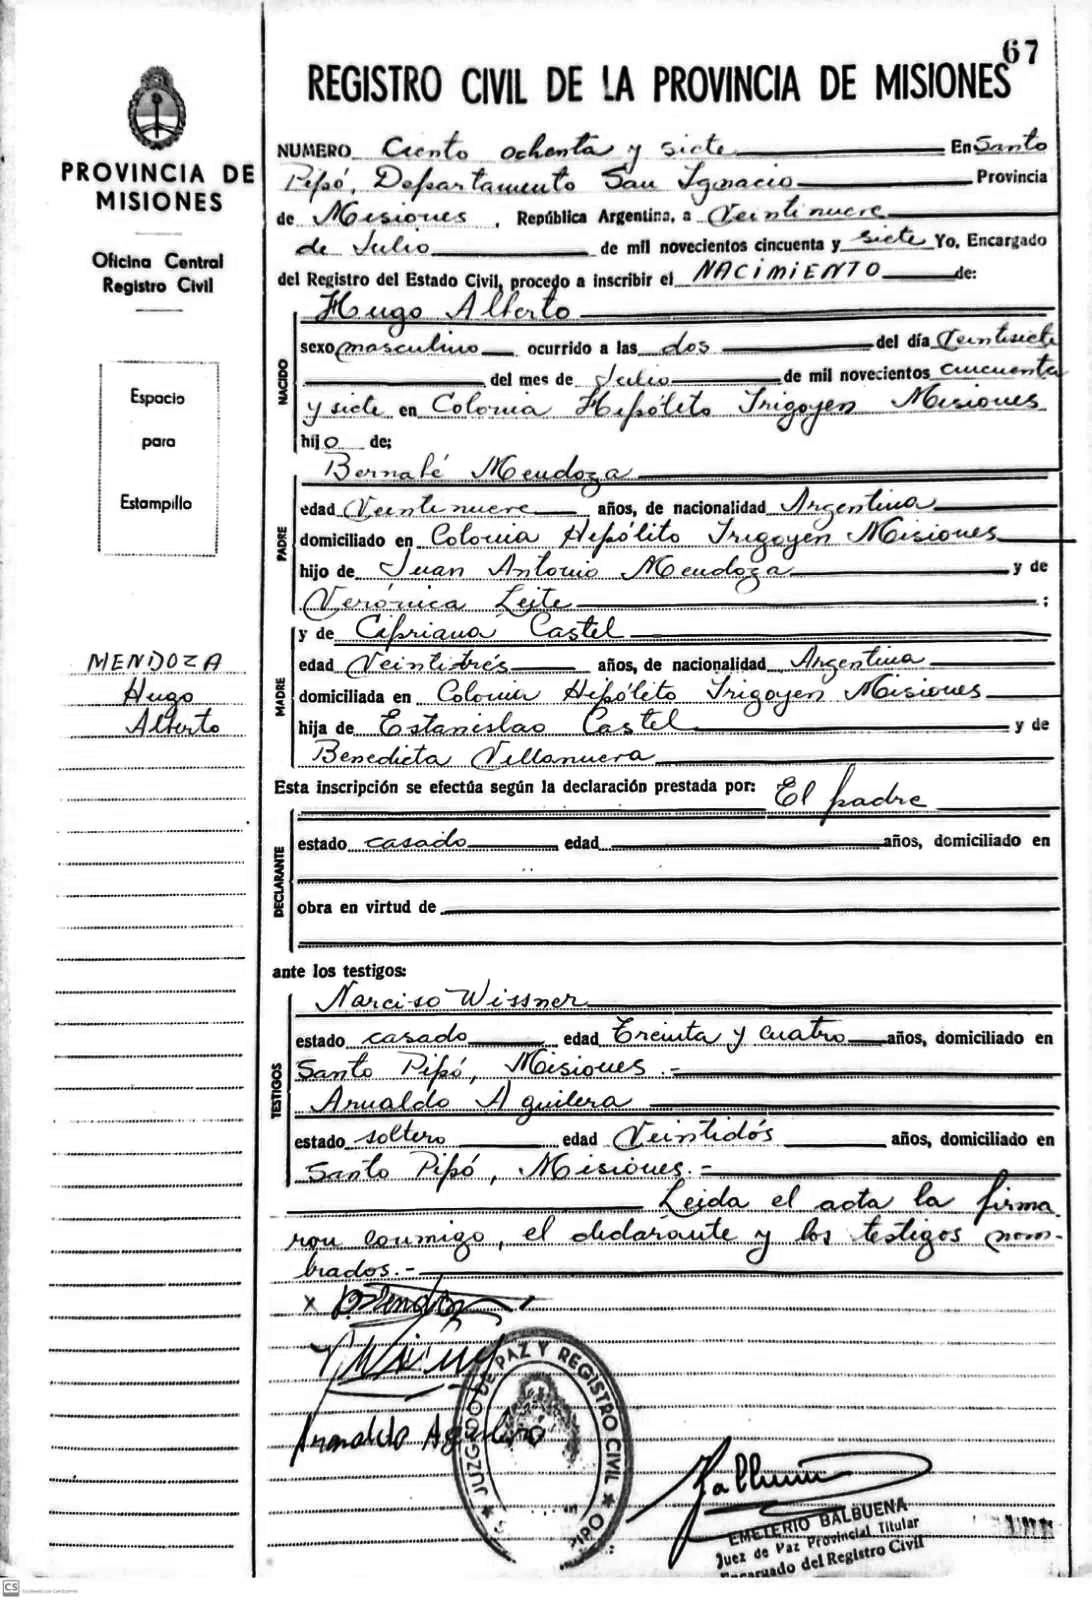 67
REGISTRO CIVIL DE LA PROVINCIA DE MISIONES
PROVINCIA DE
MISIONES
Oficina Central
Registro Civil
Espacio
para
Estampillo
MENDOZA
Hugo
Alberto
NUMERO Ciento ochenta y siete En Santo
Pipó, Departamento San Ignacio Provincia
de Misiones, República Argentina, a Veintinueve
de Julio de mil novecientos cincuenta y siete Yo, Encargado
del Registro del Estado Civil, procedo a inscribir el NACIMIENTO de:
NACIDO
Hugo Alberto
sexo masculino ocurrido a las dos del día Veintisiete
del mes de Julio de mil novecientos cincuenta
y siete en Colonia Hipólito Irigoyen Misiones
hijo de:
PADRE
Bernabé Mendoza
edad Veintinueve años, de nacionalidad Argentina
domiciliado en Colonia Hipólito Irigoyen Misiones
hijo de Juan Antonio Mendoza y de
Verónica Leite ;
MADRE
y de Cipriana Castel
edad Veintitrés años, de nacionalidad Argentina
domiciliada en Colonia Hipólito Irigoyen Misiones
hija de Estanislao Castel y de
Benedicta Villanueva
Esta inscripción se efectúa según la declaración prestada por: El padre
DECLARANTE
estado casado edad años, domiciliado en
obra en virtud de
ante los testigos:
TESTIGOS
Narciso Wissner
estado casado edad Treinta y cuatro años, domiciliado en
Santo Pipó, Misiones.-
Arnaldo Aguilera
estado soltero edad Veintidós años, domiciliado en
Santo Pipó, Misiones.-
Leida el acta la firma
ron conmigo, el declarante y los testigos nom-
brados.-
x BMendoza
Arnaldo Aguilera
JUZGADO DE PAZ Y REGISTRO CIVIL
PIPO
EMETERIO BALBUENA
Juez de Paz Provincial Titular
Encargado del Registro Civil
CS